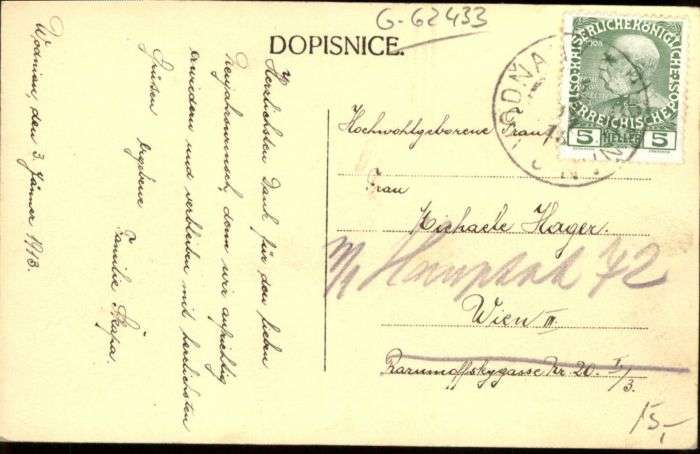 G-62433
DOPISNICE.
Wodnian, den 3. Jänner 1913.
Herzlichsten Dank für den lieben
Neujahrswunsch, denn wir aufrichtig
erwidern und verbleiben mit herzlichsten
Grüßen ergebene
Familie Škapa.
KAISERLICHE KÖNIGLICHE
ÖSTERREICHISCHE POST
5 HELLER 5
VODŇA
Hochwohlgeborene Frau
Frau
Michaele Hager.
Hauptstr 72
Wien III.
Rasumoffskygasse Nr 20. I/3.
15,-